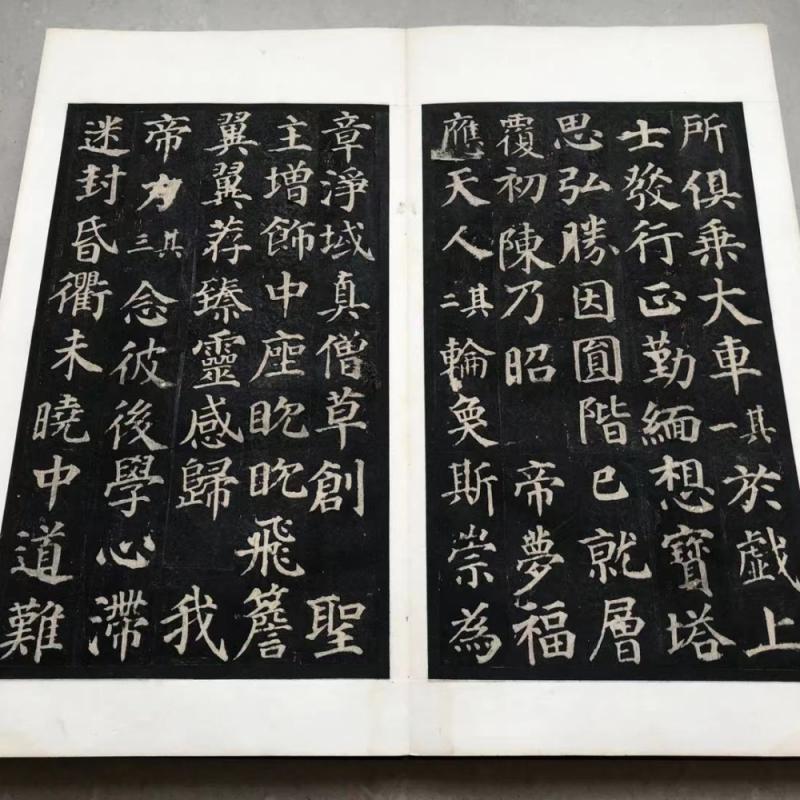 所俱乘大車其一於戲上
士發行正勤緬想寶塔
思弘勝因圓階已就層
覆初陳乃昭 帝夢福
應天人其二輪奐斯崇為
章淨域真僧草創 聖
主增飾中座眈眈飛簷
翼翼荐臻靈感歸 我
帝力其三念彼後學心滯
迷封昏衢未曉中道難